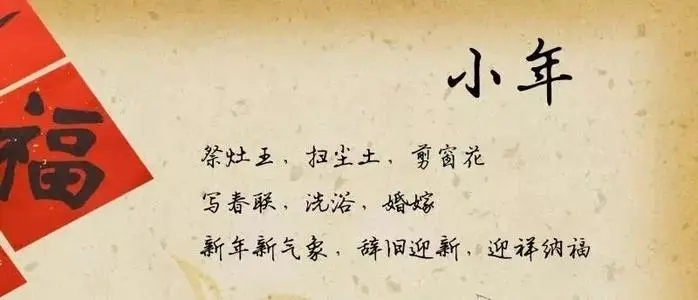 小年
福
祭灶王，扫尘土，剪窗花
写春联，洗浴，婚嫁
新年新气象，辞旧迎新，迎祥纳福